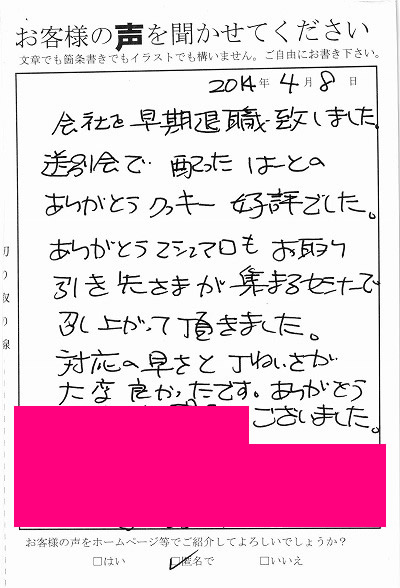 お客様の声を聞かせてください
文章でも箇条書きでもイラストでも構いません。ご自由にお書き下さい。
2014年 4月 8日
会社を早期退職致しました。
送別会で 配った はーとの
ありがとうクッキー 好評でした。
ありがとうマシュマロも お取り
引き先さまが 集まるセミナーで
召し上がって頂きました。
対応の早さと 丁ねいさが
大変 良かったです。ありがとう
ございました。
切り取り線
お客様の声をホームページ等でご紹介してよろしいでしょうか？
□はい □匿名で □いいえ